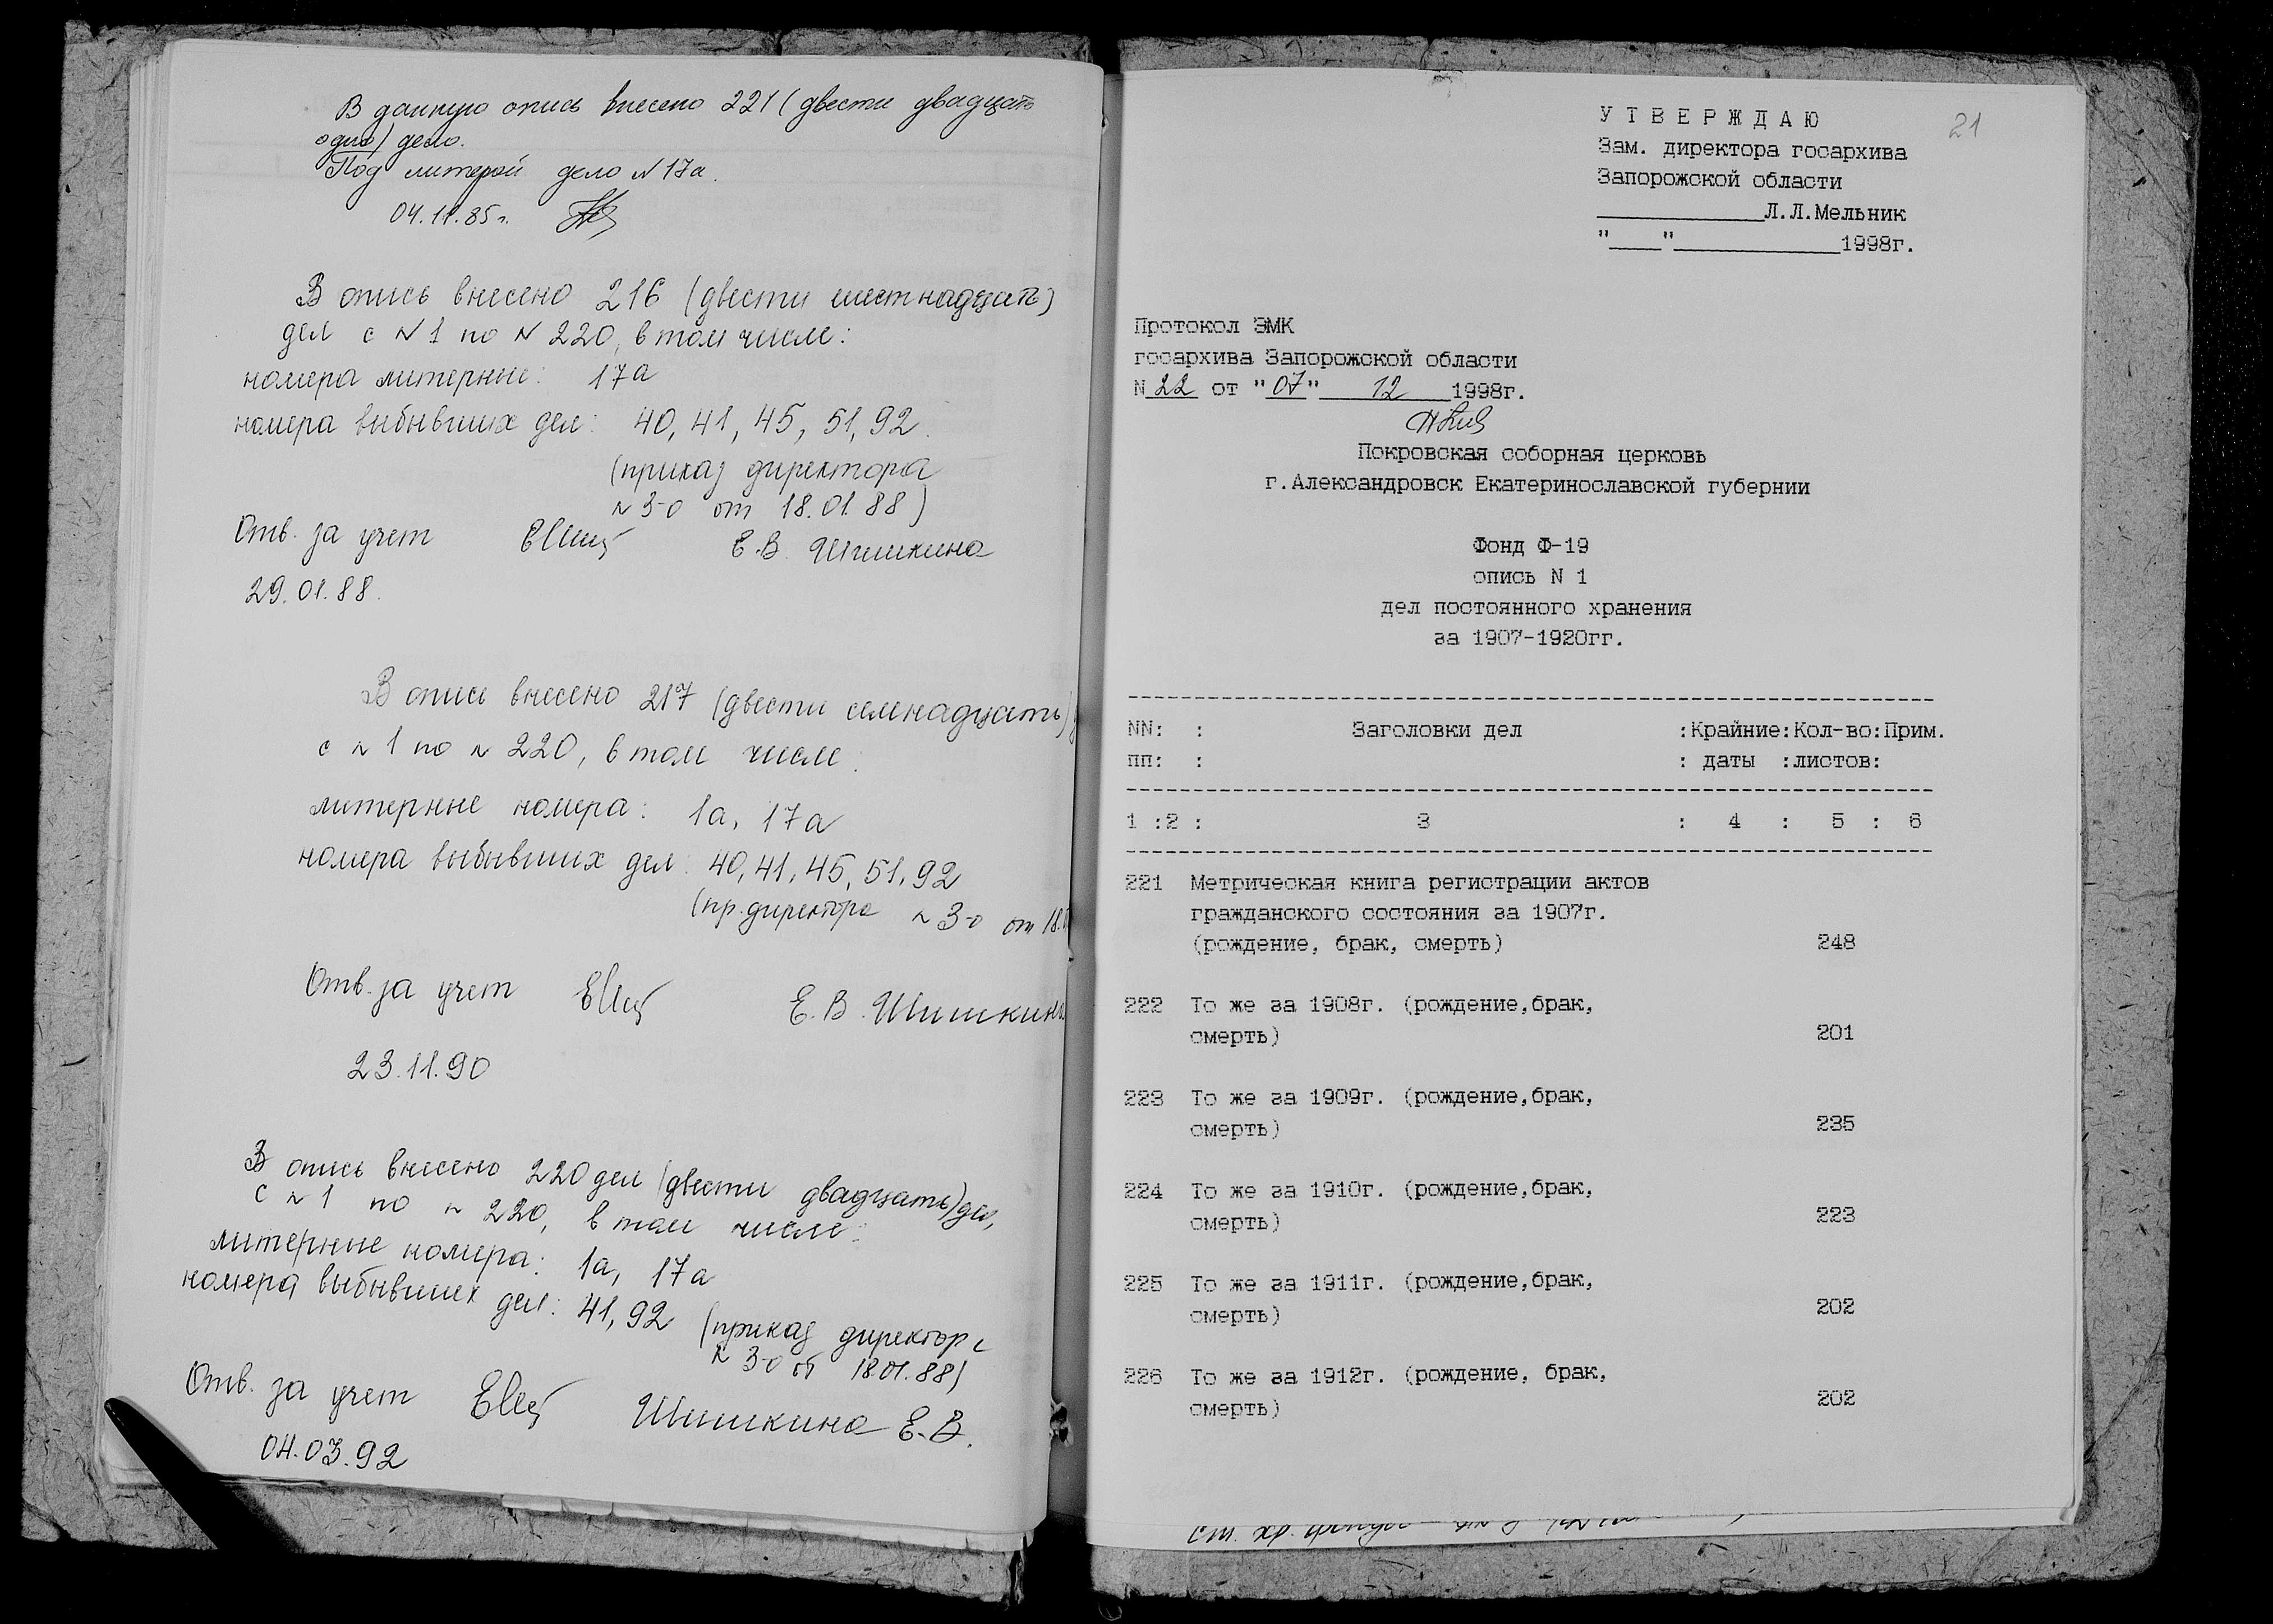 В данную опись внесено 221 (двести двадцать
одно) дело.
Под литерой дело N 17а.
04.11.85г.
В опись внесено 216 (двести шестнадцать)
дел с N 1 по N 220, в том числе:
номера литерные: 17а
номера выбывших дел: 40, 41, 45, 51, 92.
(приказ директора
N 3-о от 18.01.88)
Отв. за учет Е.В. Шишкина
29.01.88.
В опись внесено 217 (двести семнадцать)
с N 1 по N 220, в том числе:
литерные номера: 1а, 17а
номера выбывших дел: 40, 41, 45, 51, 92
(пр. директора N 3-о от 18.
Отв. за учет Е.В. Шишкина
23.11.90
В опись внесено 220 дел (двести двадцать) дел,
с N 1 по N 220, в том числе:
литерные номера: 1а, 17а
номера выбывших дел: 41, 92 (приказ директора
N 3-о от 18.01.88)
Отв. за учет Шишкина Е.В.
04.03.92
21
УТВЕРЖДАЮ
Зам. директора госархива
Запорожской области
____________Л.Л.Мельник
"____"____________1998г.
Протокол ЭМК
госархива Запорожской области
N 22 от "07" 12 1998г.
Покровская соборная церковь
г.Александровск Екатеринославской губернии
Фонд Ф-19
опись N 1
дел постоянного хранения
за 1907-1920гг.
NN: : Заголовки дел :Крайние:Кол-во:Прим.
пп: : : даты :листов:
1 :2 : 3 : 4 : 5 : 6
221 Метрическая книга регистрации актов
гражданского состояния за 1907г.
(рождение, брак, смерть) 248
222 То же за 1908г. (рождение,брак,
смерть) 201
223 То же за 1909г. (рождение,брак,
смерть) 235
224 То же за 1910г. (рождение,брак,
смерть) 223
225 То же за 1911г. (рождение,брак,
смерть) 202
226 То же за 1912г. (рождение, брак,
смерть) 202
ст. хр.